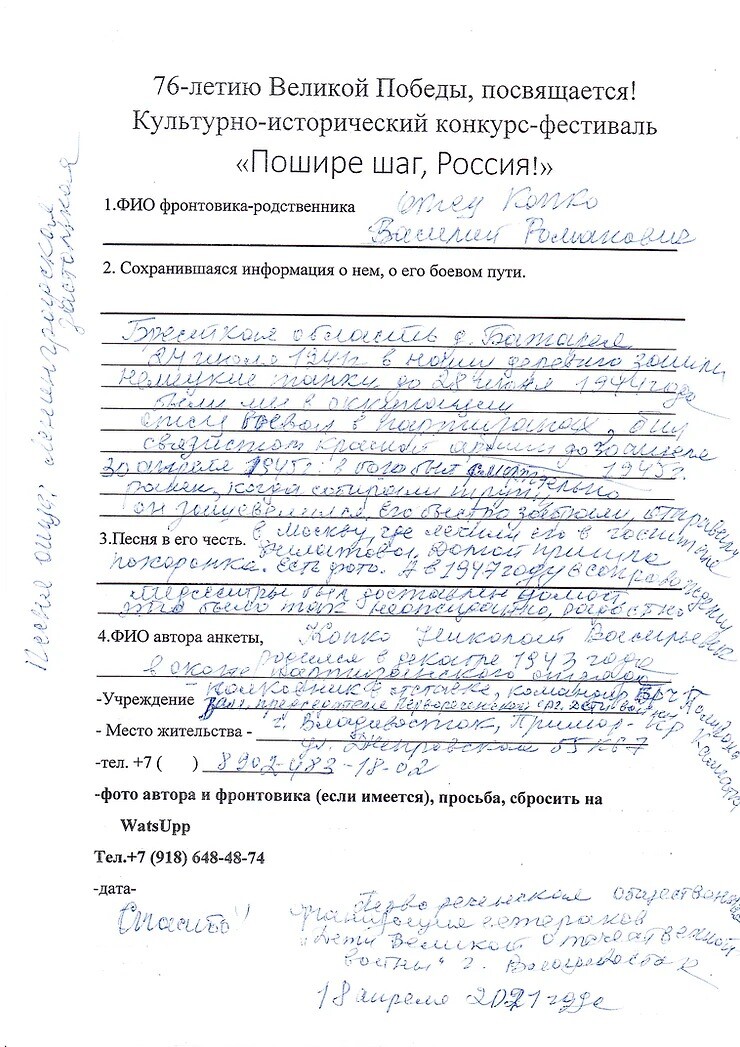 76-летию Великой Победы, посвящается!
Культурно-исторический конкурс-фестиваль
«Пошире шаг, Россия!»
1.ФИО фронтовика-родственника отец Копко
Романович
2. Сохранившаяся информация о нем, о его боевом пути.
область д.
24 июня 1941г в нашу деревню зашли
немецкие танки до 28 июня 1944 года
были мы в оккупации
отец воевал в партизанах, был
связистом красной армии до
30 апреля 1945г. в бою был 1945г.
ранен, когда собирали
он зашевелился, его быстро забрали, отправили
3.Песня в его честь. в Москву, где лечили его в госпитале
Домой пришла
похоронка. Есть фото. А в 1947 году в сопровождении
медсестры был доставлен домой
это было так неожиданно, радостно
Песня отца: Ленинградская
застольная
4.ФИО автора анкеты, Копко Николай Васильевич
родился в декабре 1943 года
в окопе партизанского отряда
-Учреждение полковник в отставке, командир
зам. председателя
- Место жительства - г. Владивосток,
ул. Днепровская 55 кв 7
-тел. +7 ( ) 8902-483-18-02
-фото автора и фронтовика (если имеется), просьба, сбросить на
WatsUpp
Тел.+7 (918) 648-48-74
-дата-
Спасибо!
Первореченская общественная
организация ветеранов
"Дети Великой Отечественной
войны" г. Владивосток
18 апреля 2021 года